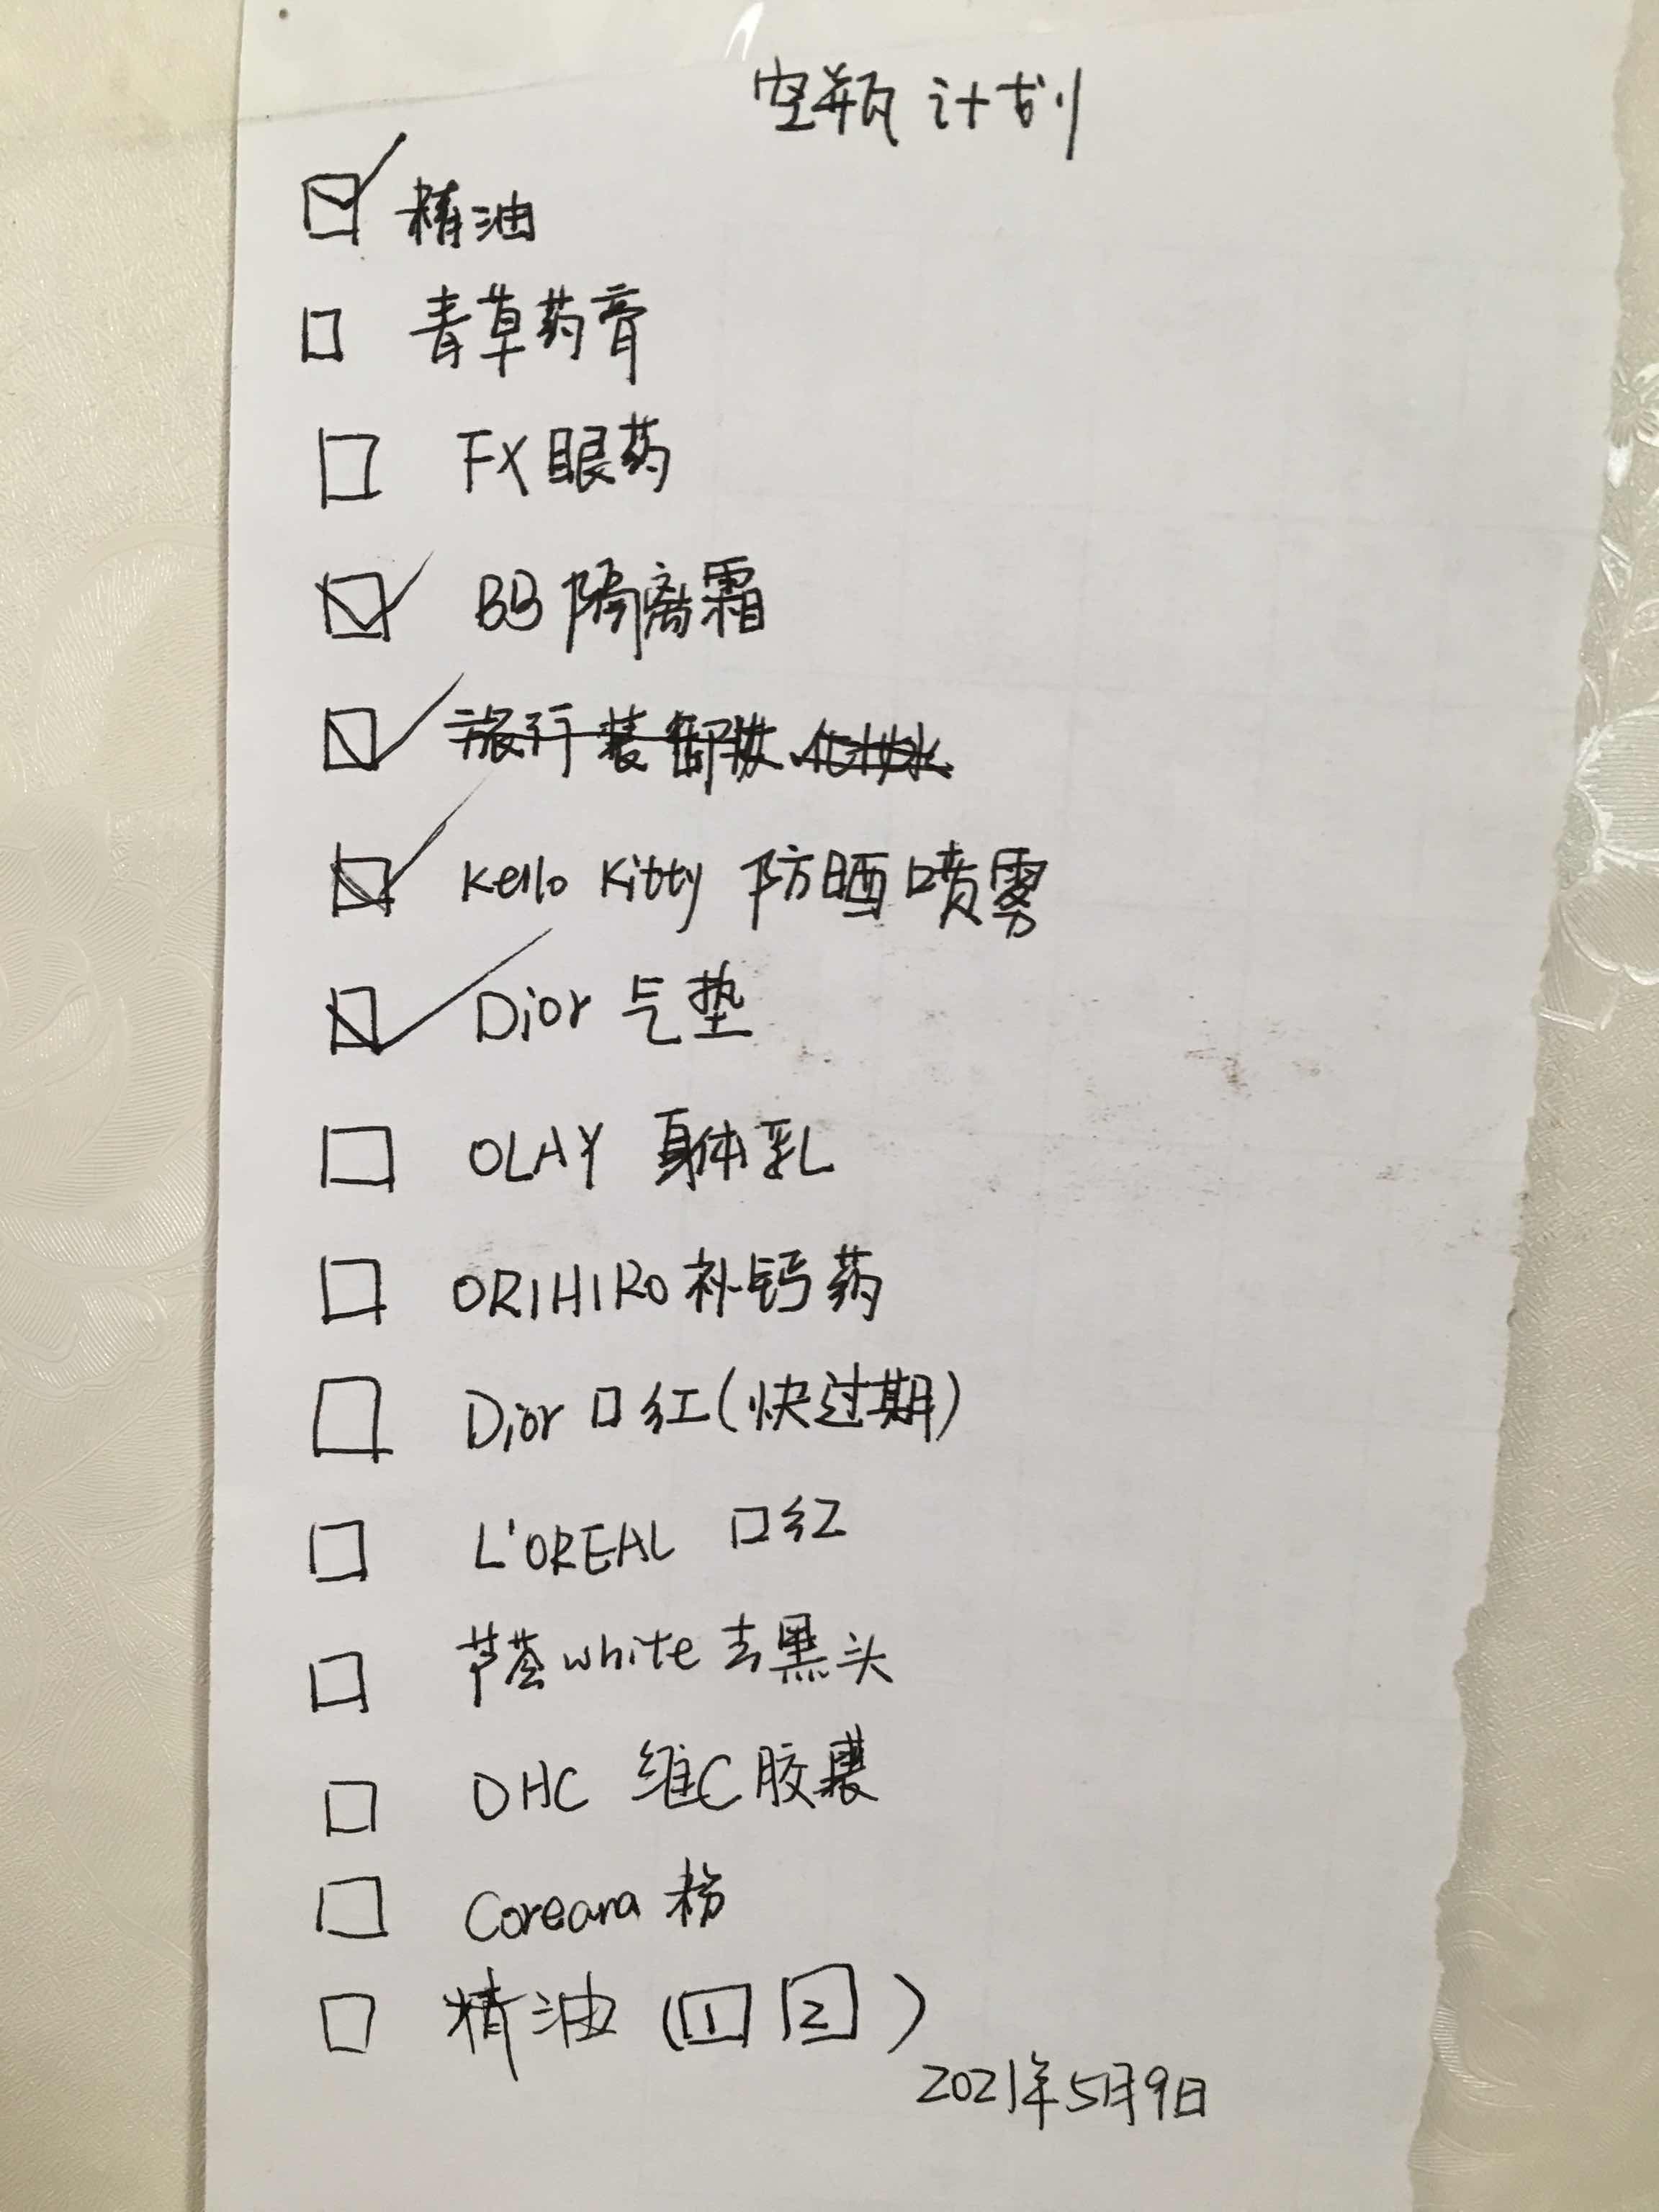 空瓶计划
☑ 精油
☐ 青草药膏
☐ FX 眼药
☑ BB 隔离霜
☑ 旅行装卸妆化妆水
☑ Kello Kitty 防晒喷雾
☑ Dior 气垫
☐ OLAY 身体乳
☐ ORIHIRO 补钙药
☐ Dior 口红(快过期)
☐ L'OREAL 口红
☐ 芦荟white去黑头
☐ DHC 维C胶囊
☐ Coreana 粉
☐ 精油 (1 2)
2021年5月9日